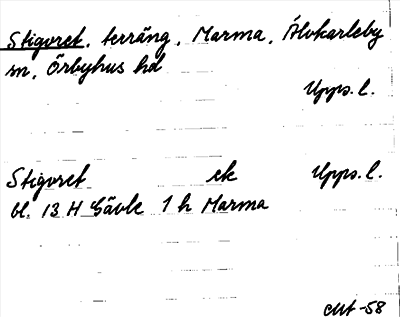 Stigvret, terräng, Marma, Älvkarleby
sn, Örbyhus hd
Upps. l.
Stigvret ek Upps. l.
bl. 13 H Gävle 1 h Marma
-58